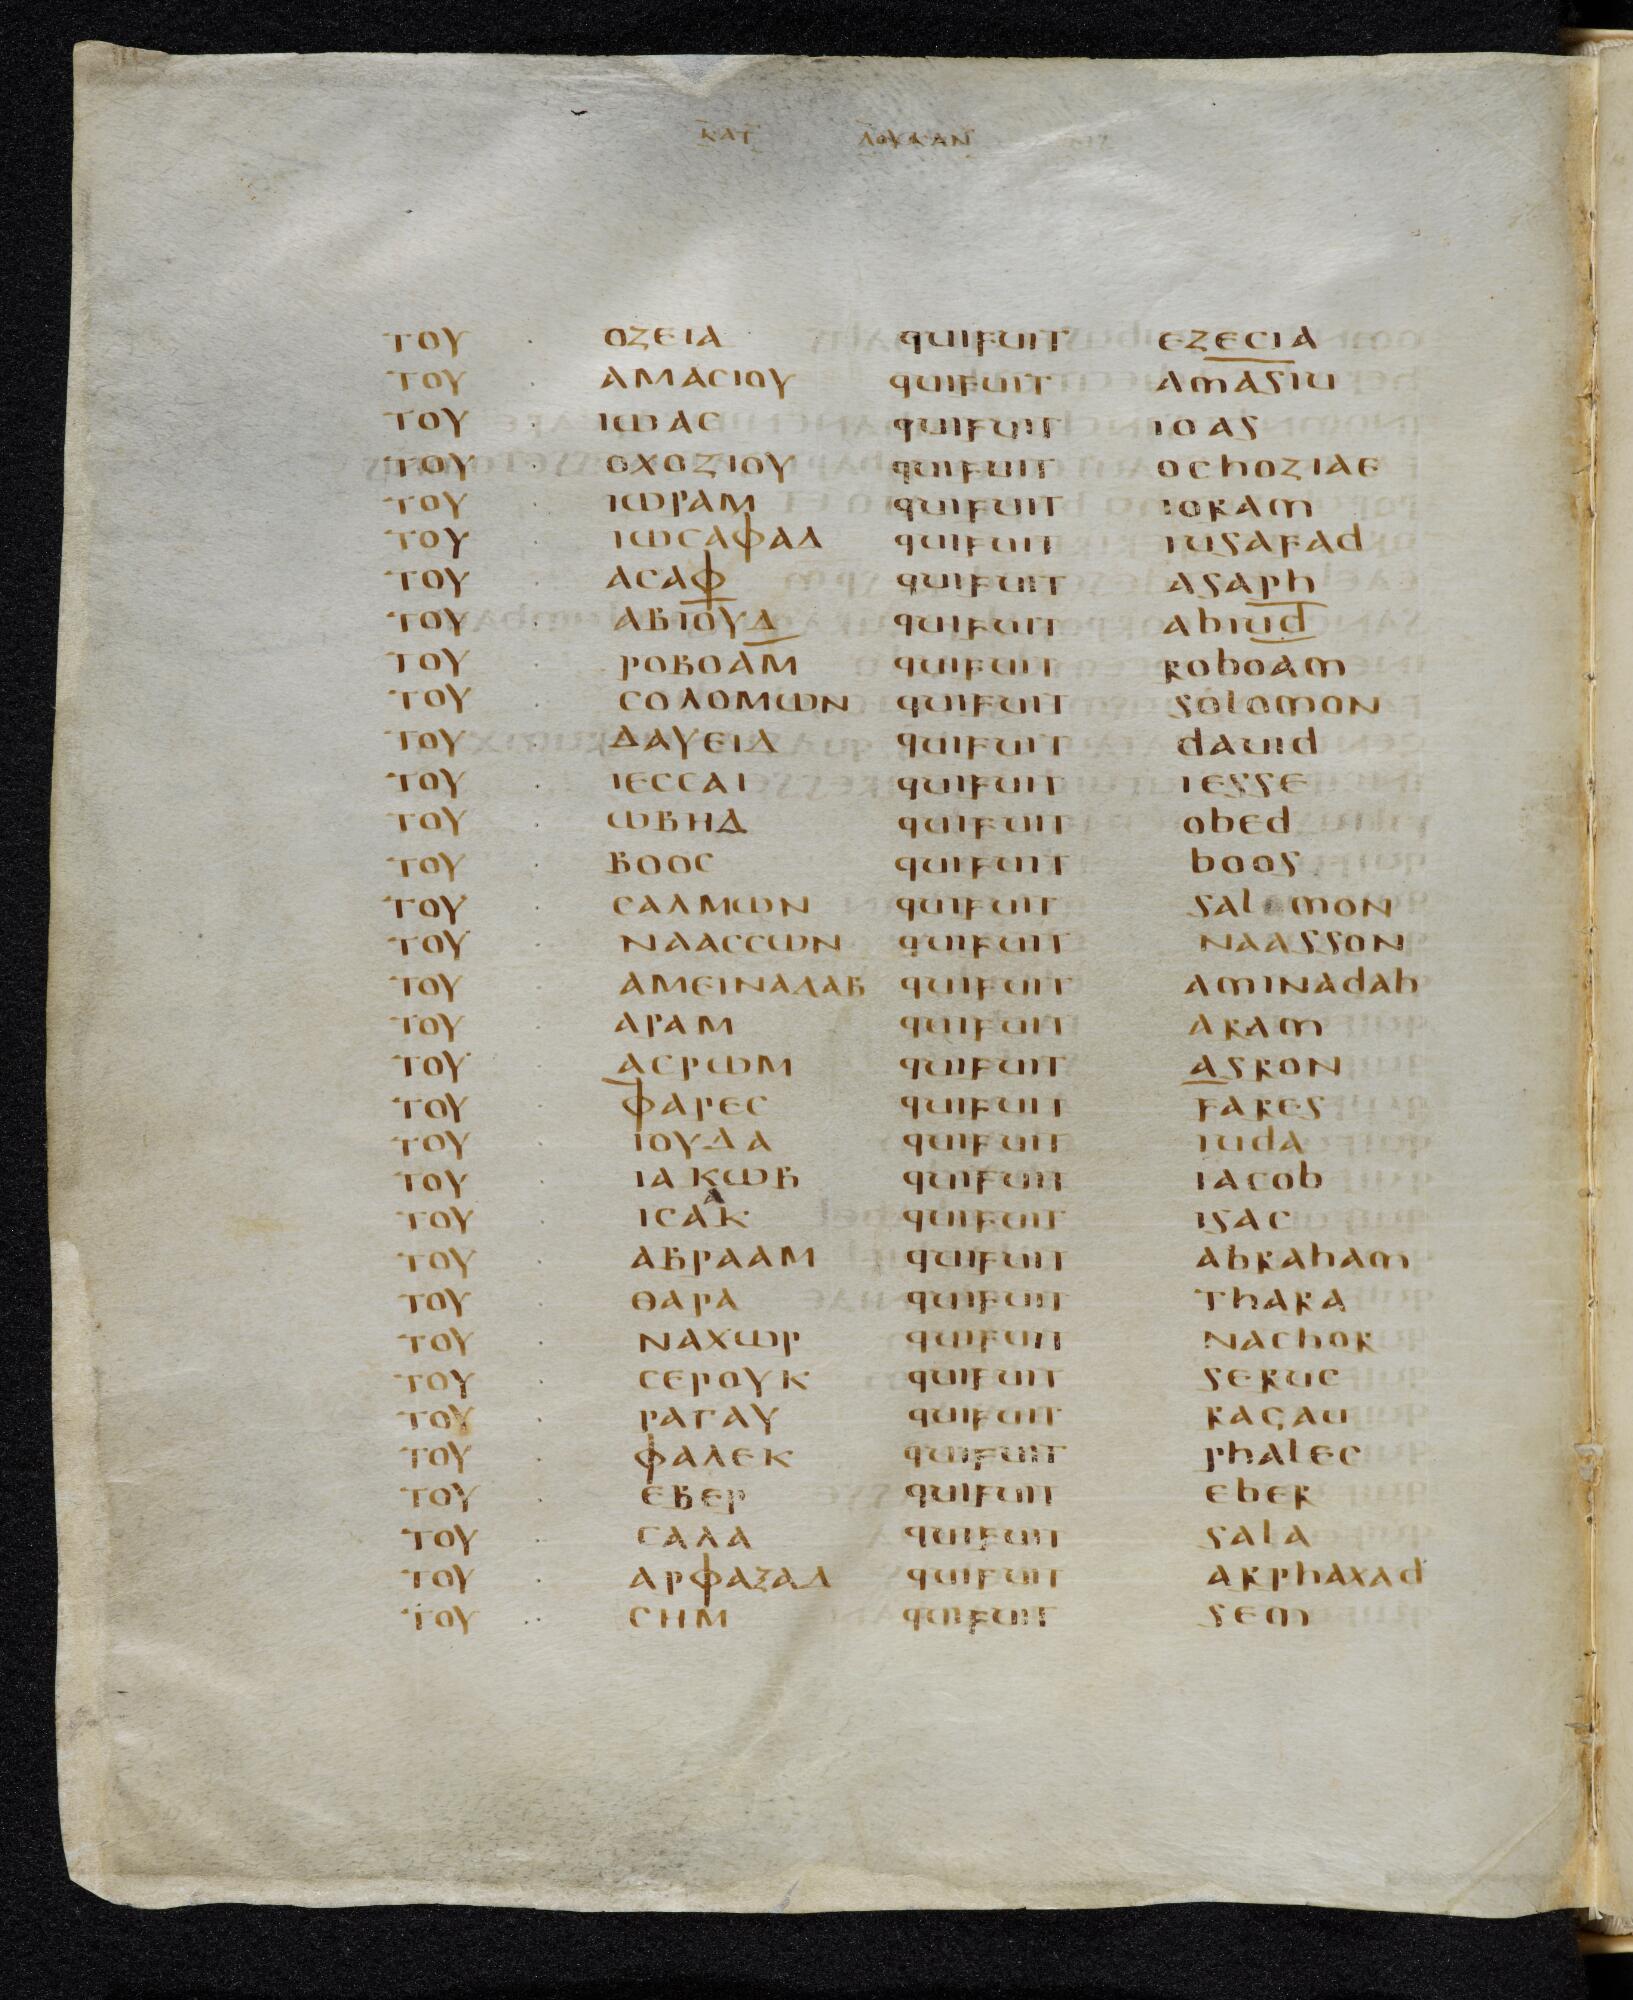 ΚΑΤ ΛΟΥΚΑΝ
ΤΟΥ ΟΖΕΙΑ quifuit ezecia
ΤΟΥ ΑΜΑϹΙΟΥ quifuit amasiu
ΤΟΥ ΙΩΑϹ quifuit ioas
ΤΟΥ ΟΧΟΖΙΟΥ quifuit ochoziae
ΤΟΥ ΙΩΡΑΜ quifuit ioram
ΤΟΥ ΙΩϹΑΦΑΔ quifuit iusafad
ΤΟΥ ΑϹΑΦ quifuit asaph
ΤΟΥ ΑΒΙΟΥΔ quifuit abiud
ΤΟΥ ΡΟΒΟΑΜ quifuit roboam
ΤΟΥ ϹΟΛΟΜΩΝ quifuit solomon
ΤΟΥ ΔΑΥΕΙΔ quifuit dauid
ΤΟΥ ΙΕϹϹΑΙ quifuit iesse
ΤΟΥ ΩΒΗΔ quifuit obed
ΤΟΥ ΒΟΟϹ quifuit boos
ΤΟΥ ϹΑΛΜΩΝ quifuit salmon
ΤΟΥ ΝΑΑϹϹΩΝ quifuit naasson
ΤΟΥ ΑΜΕΙΝΑΔΑΒ quifuit aminadab
ΤΟΥ ΑΡΑΜ quifuit aram
ΤΟΥ ΑϹΡΩΜ quifuit asron
ΤΟΥ ΦΑΡΕϹ quifuit fares
ΤΟΥ ΙΟΥΔΑ quifuit iuda
ΤΟΥ ΙΑΚΩΒ quifuit iacob
ΤΟΥ ΙϹΑΑΚ quifuit isac
ΤΟΥ ΑΒΡΑΑΜ quifuit abraham
ΤΟΥ ΘΑΡΑ quifuit thara
ΤΟΥ ΝΑΧΩΡ quifuit nachor
ΤΟΥ ϹΕΡΟΥΚ quifuit seruc
ΤΟΥ ΡΑΓΑΥ quifuit ragau
ΤΟΥ ΦΑΛΕΚ quifuit phalec
ΤΟΥ ΕΒΕΡ quifuit eber
ΤΟΥ ϹΑΛΑ quifuit sala
ΤΟΥ ΑΡΦΑΞΑΔ quifuit arphaxad
ΤΟΥ ϹΗΜ quifuit sem